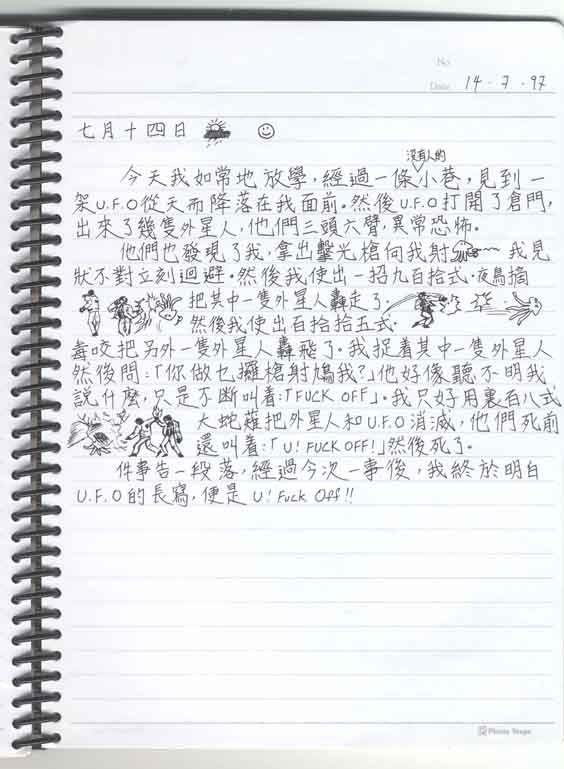 No.
Date 14 · 7 · 97
七月十四日
沒有人的
今天我如常地放學，經過一條小巷，見到一
架U.F.O從天而降落在我面前。然後U.F.O打開了倉門，
出來了幾隻外星人，他們三頭六臂，異常恐怖。
他們也發現了我，拿出擊光槍向我射 我見
狀不對立刻迴避。然後我使出一招九百拾式·夜鳥摘
把其中一隻外星人轟走了。
然後我使出百拾拾五式·
毒咬把另外一隻外星人轟飛了。我捉着其中一隻外星人
然後問：「你做乜攞槍射鳩我？」他好像聽不明我
說什麼，只是不斷叫着：「FUCK OFF」。我只好用裏百八式
大蛇薙把外星人和U.F.O消滅，他們死前
還叫着：「U! FUCK OFF!」然後死了。
件事告一段落，經過今次一事後，我終於明白
U.F.O的長寫，便是U! Fuck Off!!